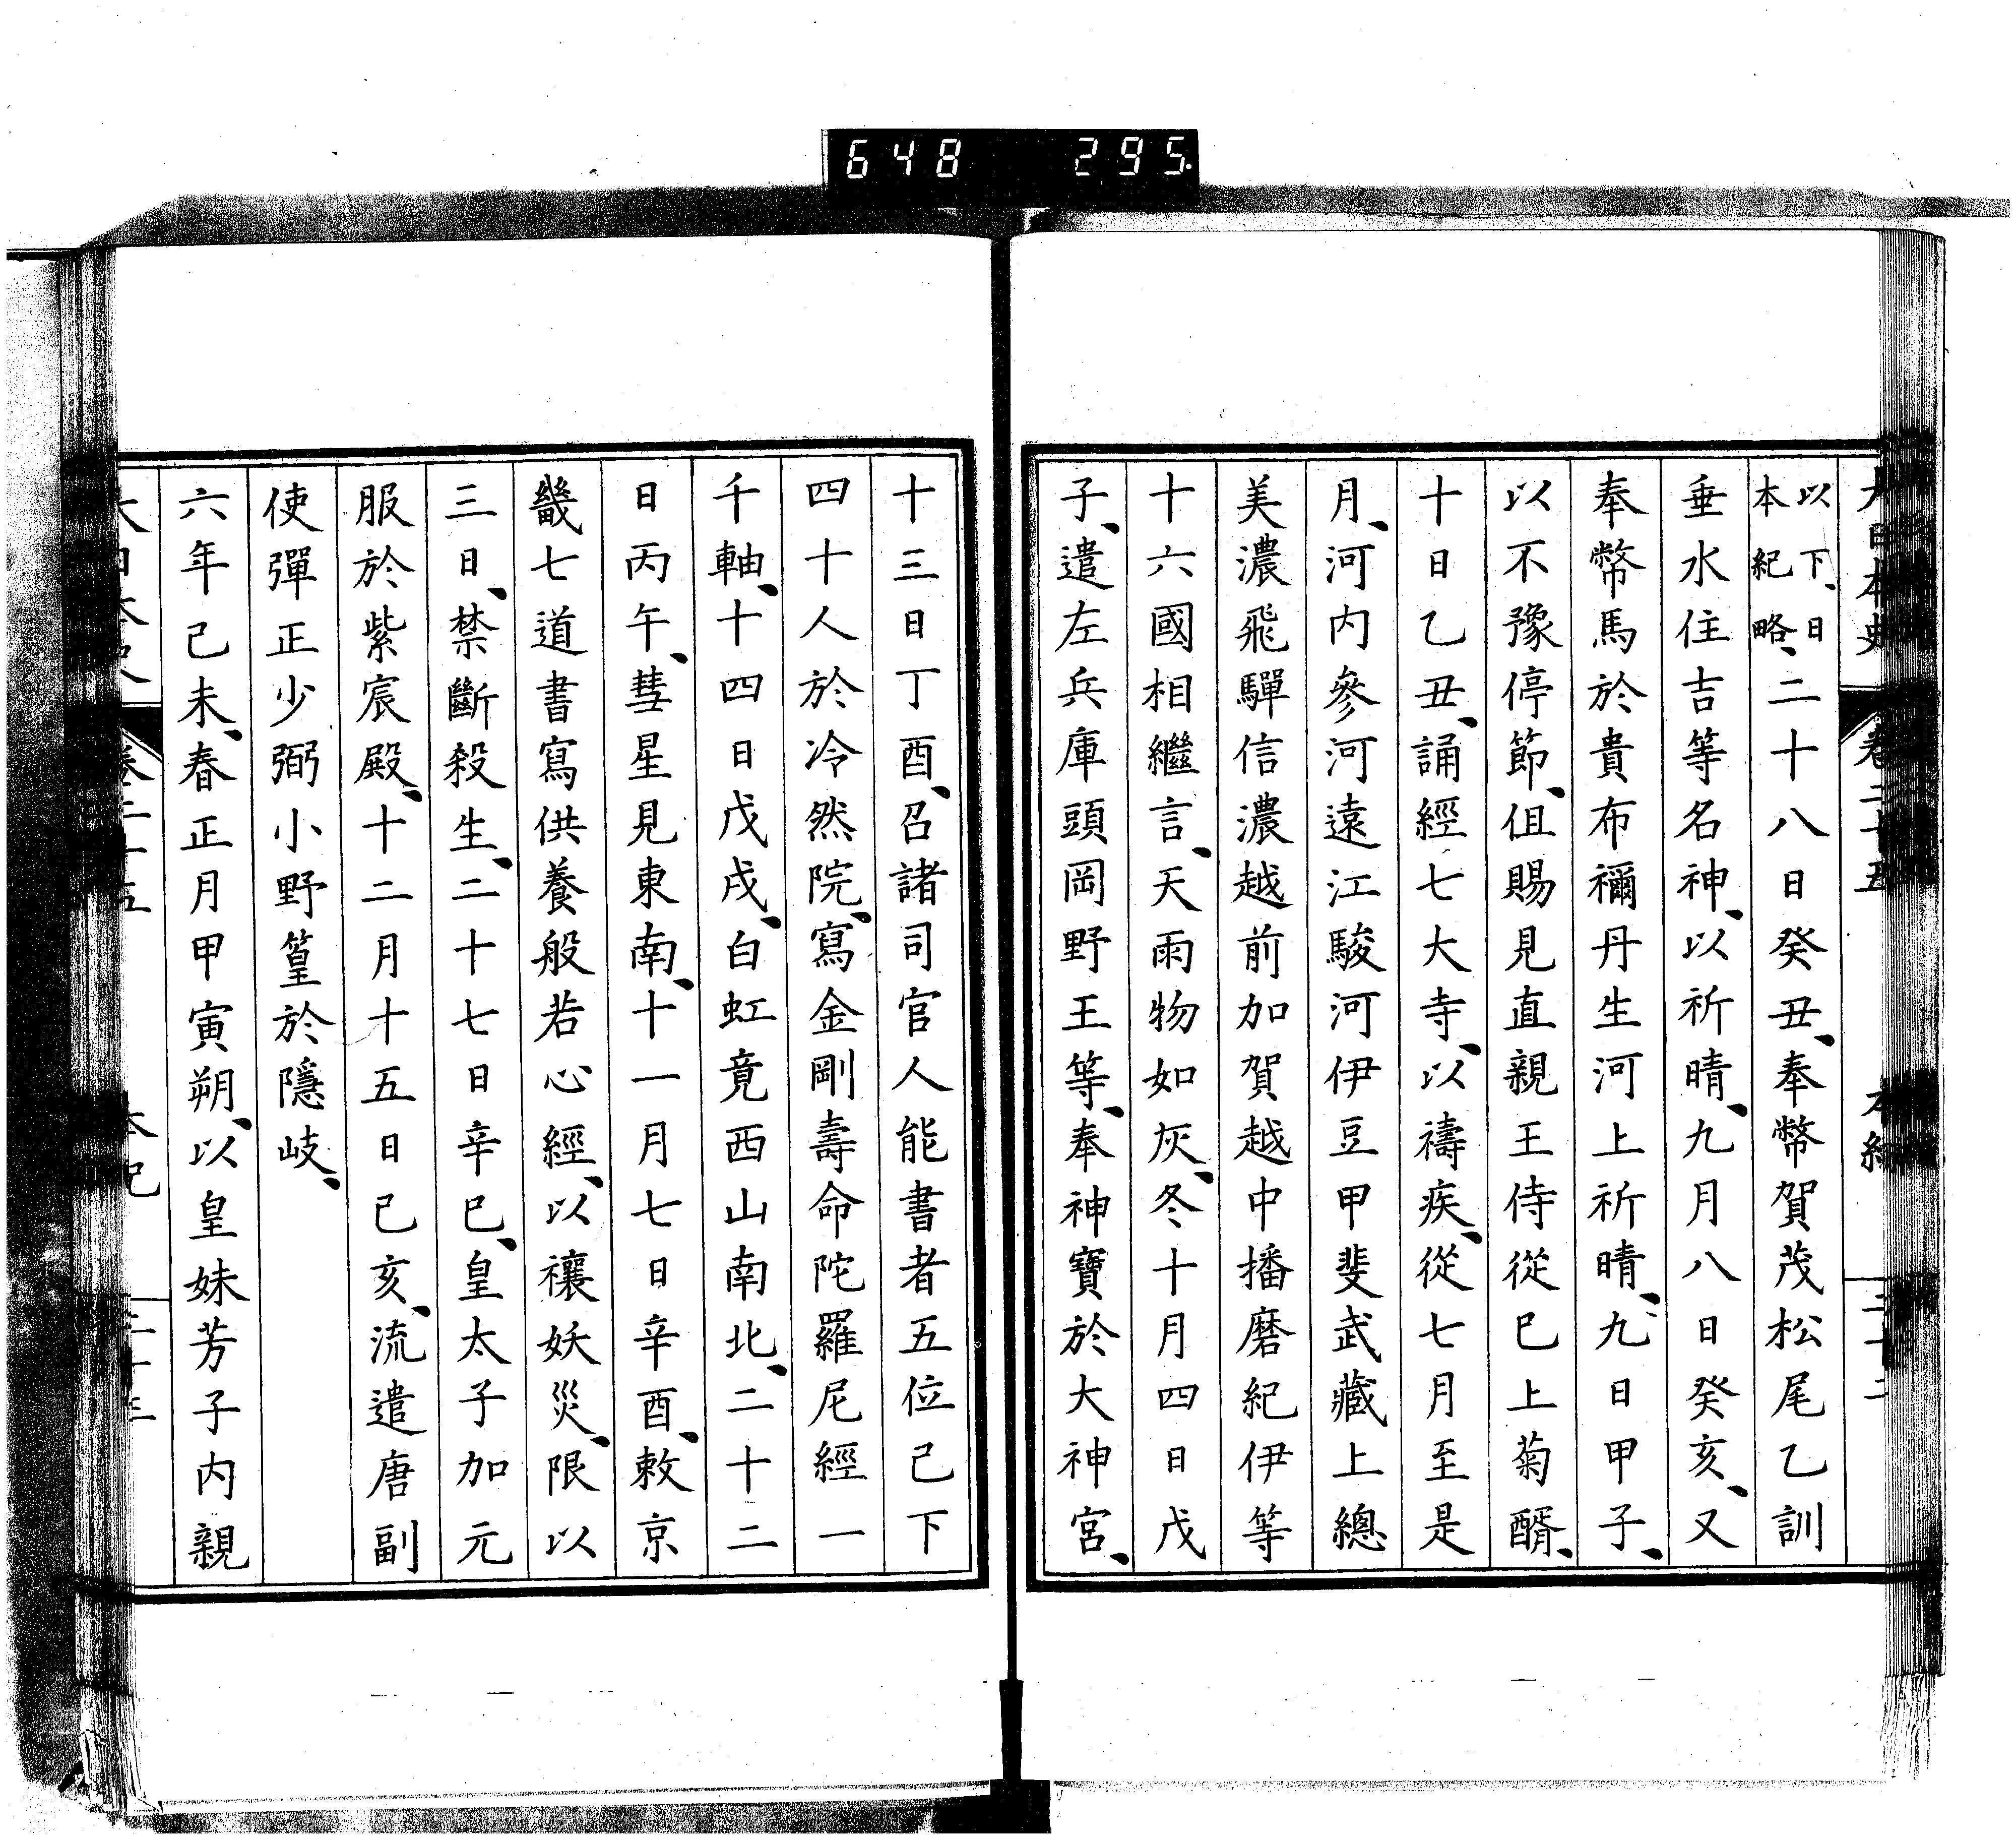 648 295
大日本史 卷二十五 本紀 二十二
以下、日本紀略、二十八日癸丑、奉幣賀茂松尾乙訓
垂水住吉等名神、以祈晴、九月八日癸亥、又
奉幣馬於貴布禰丹生河上祈晴、九日甲子、
以不豫停節、但賜見直親王侍從已上菊醑、
十日乙丑、誦經七大寺、以禱疾、從七月至是
月、河内參河遠江駿河伊豆甲斐武藏上總
美濃飛驒信濃越前加賀越中播磨紀伊等
十六國相繼言、天雨物如灰、冬十月四日戊
子、遣左兵庫頭岡野王等、奉神寶於大神宮、
十三日丁酉、召諸司官人能書者五位已下
四十人於冷然院、寫金剛壽命陀羅尼經一
千軸、十四日戊戌、白虹竟西山南北、二十二
日丙午、彗星見東南、十一月七日辛酉、敕京
畿七道書寫供養般若心經、以禳妖災、限以
三日、禁斷殺生、二十七日辛巳、皇太子加元
服於紫宸殿、十二月十五日己亥、流遣唐副
使彈正少弼小野篁於隱岐、
六年己未、春正月甲寅朔、以皇妹芳子内親
大日本史 卷二十五 本紀 二十三